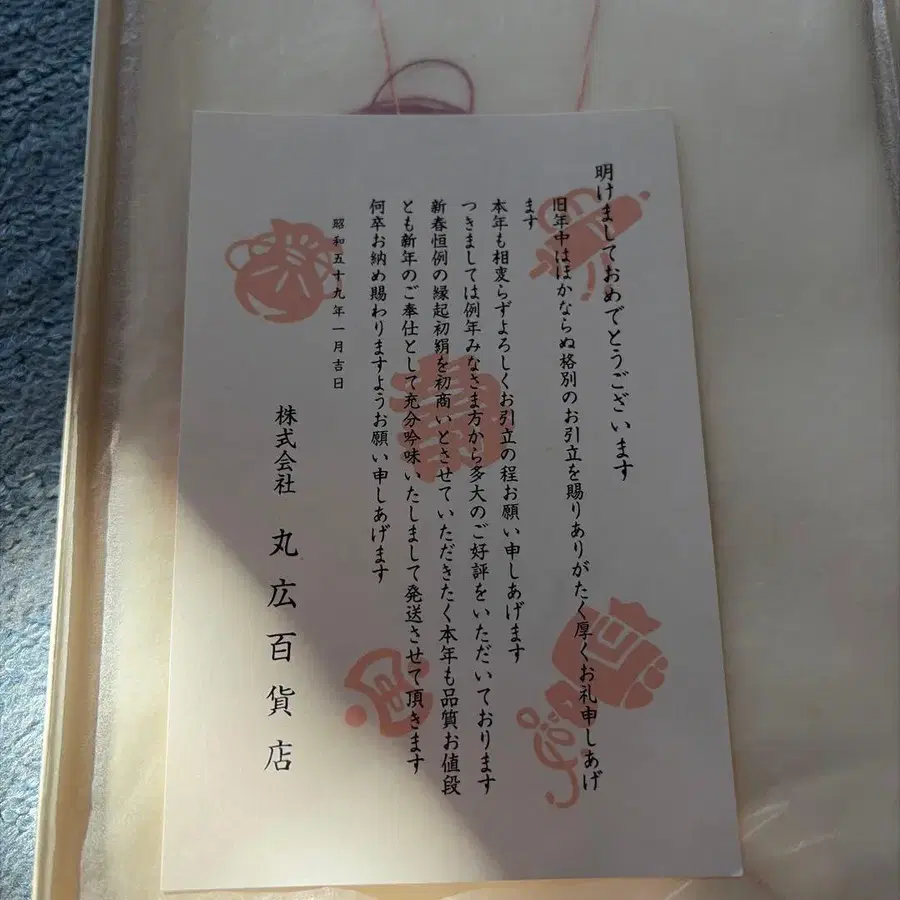 明けましておめでとうございます
旧年中はほかならぬ格別のお引立を賜りありがたく厚くお礼申しあげ
ます
本年も相変らずよろしくお引立の程お願い申しあげます
つきましては例年みなさま方から多大のご好評をいただいております
新春恒例の縁起初絹を初商いとさせていただきたく本年も品質お値段
とも新年のご奉仕として充分吟味いたしまして発送させて頂きます
何卒お納め賜わりますようお願い申しあげます
昭和五十九年一月吉日
株式会社 丸広百貨店
寿